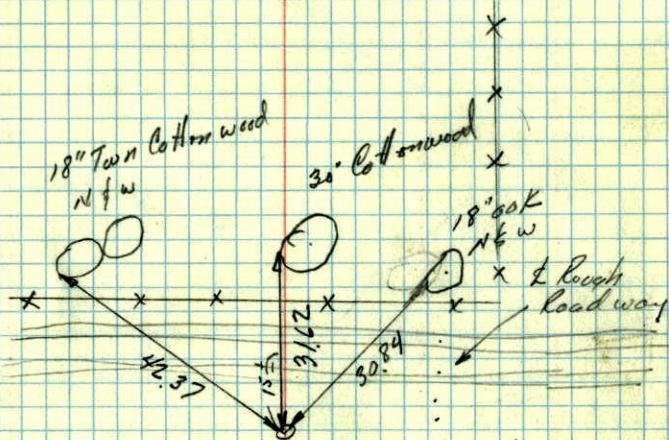 18" Twn Cottonwood
N & W
30" Cottonwood
18" OAK
N & W
℄ Rough
Roadway
42.37
15 ±
31.62
30.84